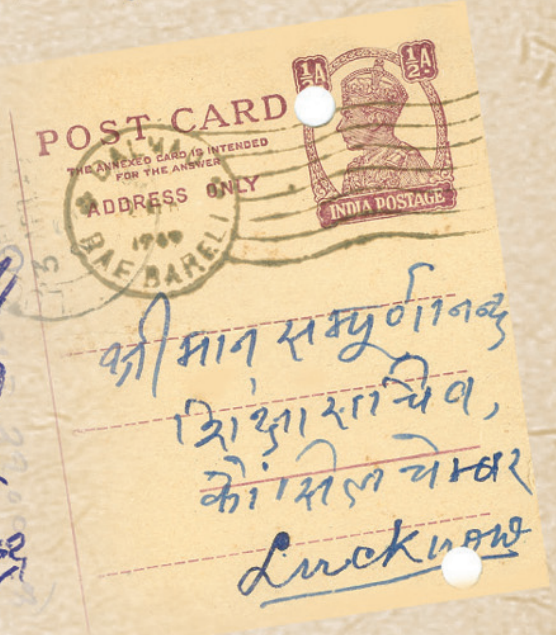 ½A ½A
POST CARD
THE ANNEXED CARD IS INTENDED
FOR THE ANSWER
ADDRESS ONLY
INDIA POSTAGE
RAE BARELI
श्रीमान् सम्पूर्णानन्द
शिक्षा सचिव,
कौंसिल चेम्बर
Lucknow